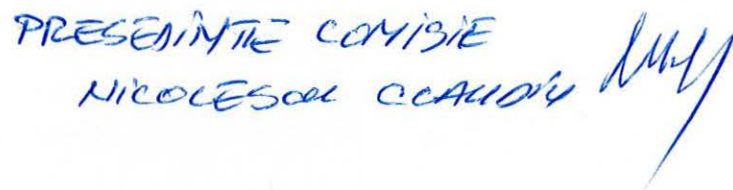 PRESEDINTE COMISIE
NICOLESCU CLAUDIU